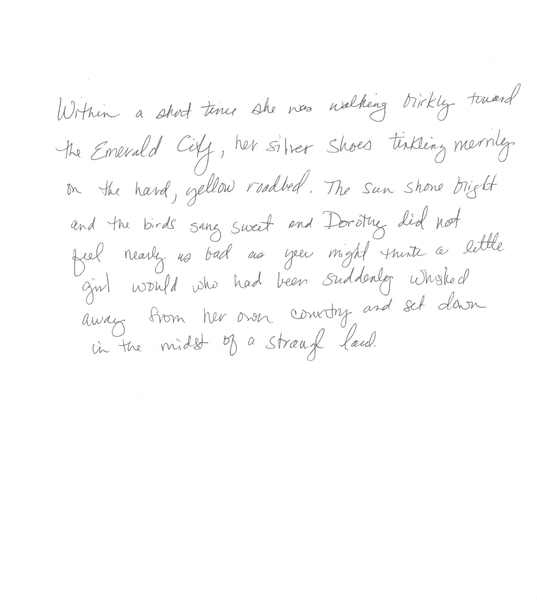 Within a short time she was walking birkly toward
the Emerald City, her silver shoes tinkling merrily
on the hard, yellow roadbed. The sun shone bright
and the birds sang sweet and Dorothy did not
feel nearly as bad as you might think a little
girl would who had been suddenly whisked
away from her own country and set down
in the midst of a strange land.